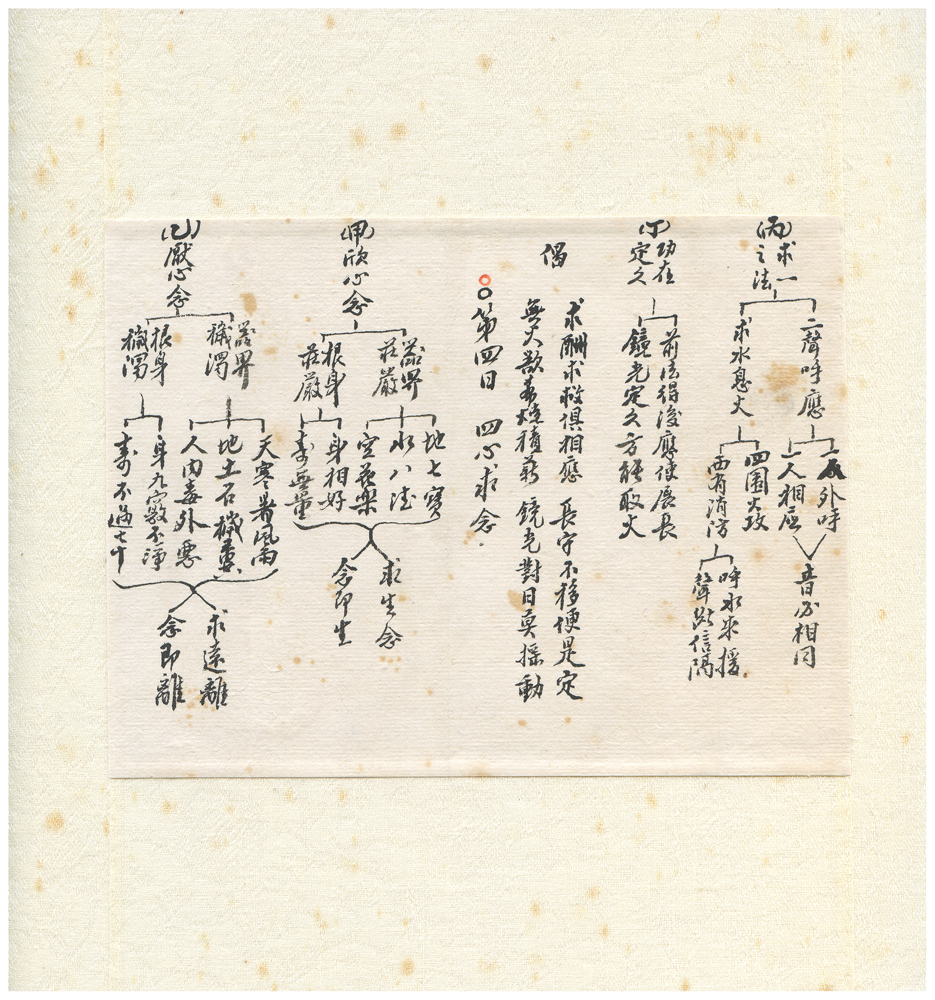 (丙)求一之法
二聲呼應
外呼
一人相應
音必相同
求水息火
四圍火攻
西有消防
呼水來援
聲斷信隔
(丁)功在定久
前法得後應使展長
鏡光定久方能取火
偈
求酬求救俱相應 長守不移便是定
無火欲燒積薪 鏡光對日莫搖動
第四日 四心求念
(甲)欣心念
器界莊嚴
地七寶
水八德
空花樂
根身莊嚴
身相好
壽無量
求生念
念即生
(乙)厭心念
器界穢濁
天寒暑風雨
地土石穢
人內毒外惡
根身穢濁
身九竅不淨
壽不過七十
求遠離
念即離